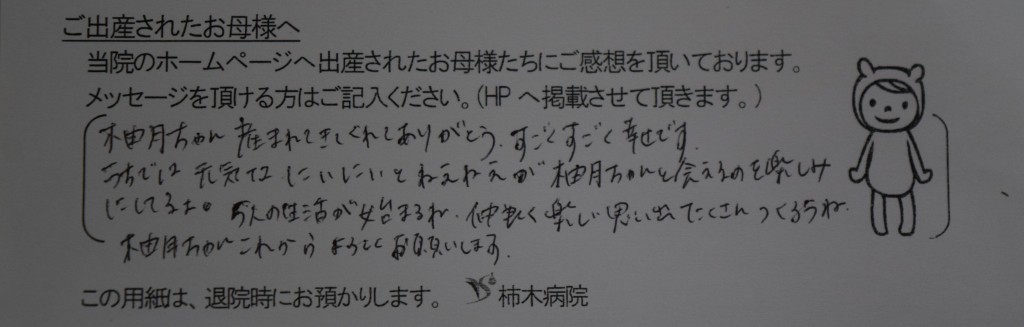 ご出産されたお母様へ
当院のホームページへ出産されたお母様たちにご感想を頂いております。
メッセージを頂ける方はご記入ください。(HPへ掲載させて頂きます。)
柚月ちゃん 産まれてきてくれてありがとう。すごくすごく幸せです。
うちでは 元気な にぃにぃと ねぇねぇが 柚月ちゃんと会えるのを楽しみ
にしてるよ。 5人の生活が始まるね。仲良く楽しい思い出たくさんつくろうね。
柚月ちゃん これから よろしくお願いします。
この用紙は、退院時にお預かりします。 柿木病院